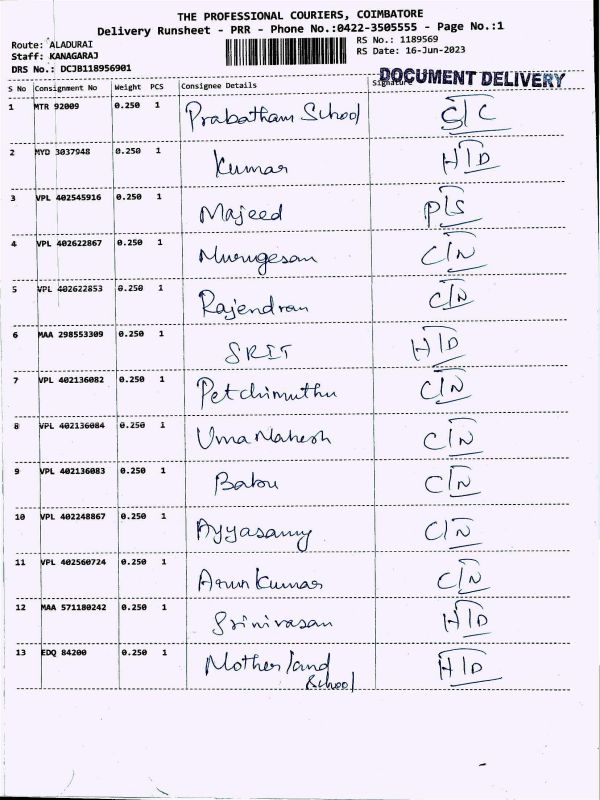 THE PROFESSIONAL COURIERS, COIMBATORE
Delivery Runsheet - PRR - Phone No.:0422-3505555 - Page No.:1
Route: ALADURAI
Staff: KANAGARAJ
DRS No.: DCJB118956901
RS No.: 1189569
RS Date: 16-Jun-2023
DOCUMENT DELIVERY
S No Consignment No Weight PCS Consignee Details Signature
1 MTR 92009 0.250 1 Prabatham School S/C
2 MYD 3037948 0.250 1 Kumar H/D
3 VPL 402545916 0.250 1 Majeed P/S
4 VPL 402622867 0.250 1 Murugesan C/N
5 VPL 402622853 0.250 1 Rajendran C/N
6 MAA 298553309 0.250 1 SRIT H/D
7 VPL 402136082 0.250 1 Petchimuthu C/N
8 VPL 402136084 0.250 1 Uma Mahesh C/N
9 VPL 402136083 0.250 1 Babu C/N
10 VPL 402248867 0.250 1 Ayyasamy C/N
11 VPL 402560724 0.250 1 Arun Kumar C/N
12 MAA 571180242 0.250 1 Srinivasan H/D
13 EDQ 84200 0.250 1 Mother land H/D
School